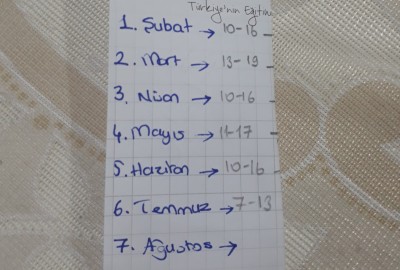 Türkiye'nin Eğitim
1. Şubat → 10-16 -
2. Mart → 13-19 -
3. Nisan → 10-16 -
4. Mayıs → 11-17 -
5. Haziran → 10-16 -
6. Temmuz → 7-13
7. Ağustos →